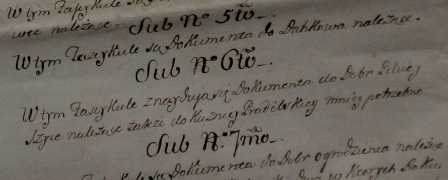 W tym Fascykule
wcе należące.
Sub No 5to.
W tym Fascykule są Dokumenta do Dąbkowa należące.
Sub No 6to.
W tym Fascykule znayduią się Dokumenta do Dobr Pilicy
należące także do mniey potrzebne
Sub No 7mo.
są Dokumenta do Dobr Ogrodzienca należące
w których